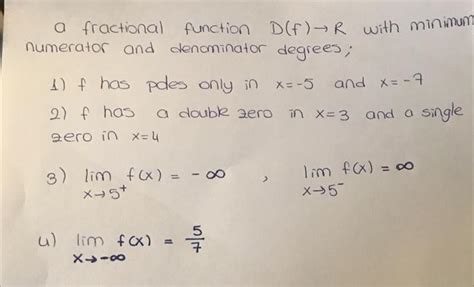 a fractional function D(f)→R with minimum
numerator and denominator degrees;
1) f has poles only in x=-5 and x=-7
2) f has a double zero in x=3 and a single
zero in x=4
3) lim f(x) = -∞ , lim f(x) = ∞
x→5⁺ x→5⁻
4) lim f(x) = 5/7
x→-∞